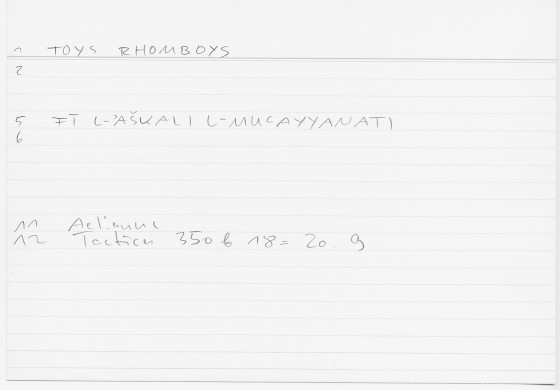 1 TOYS RHOMBOYS
2
5 FĪ L-ʾAŠKALI L-MUCAYYANATI
6
11 Aelianus
12 Tactica 350 b 18 = 20. 9